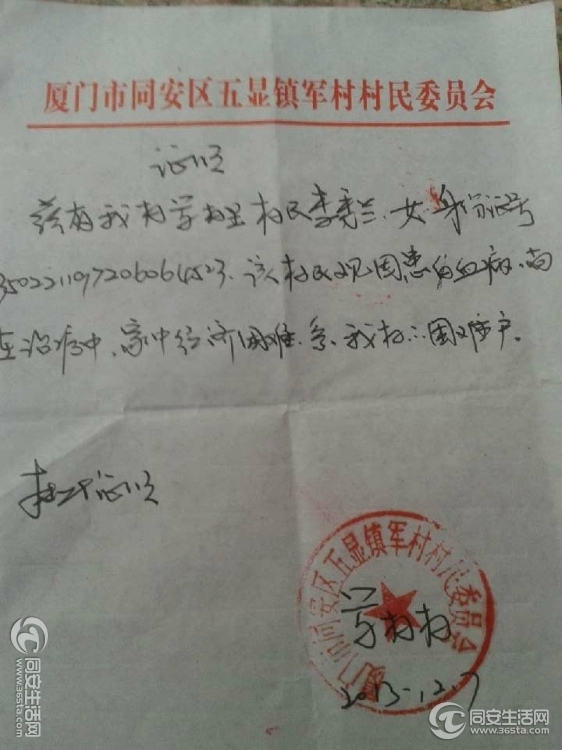 厦门市同安区五显镇军村村民委员会
证明
兹有我村军村里村民李秀兰、女、身份证号
350221197206064523.该村民现因患白血病、尚
在治疗中、家中经济困难.系我村困难户.
特此证明
厦门市同安区五显镇军村村民委员会
军村村
2013-12.7
同安生活网
www.36sta.com
同安生活网
www.36sta.com